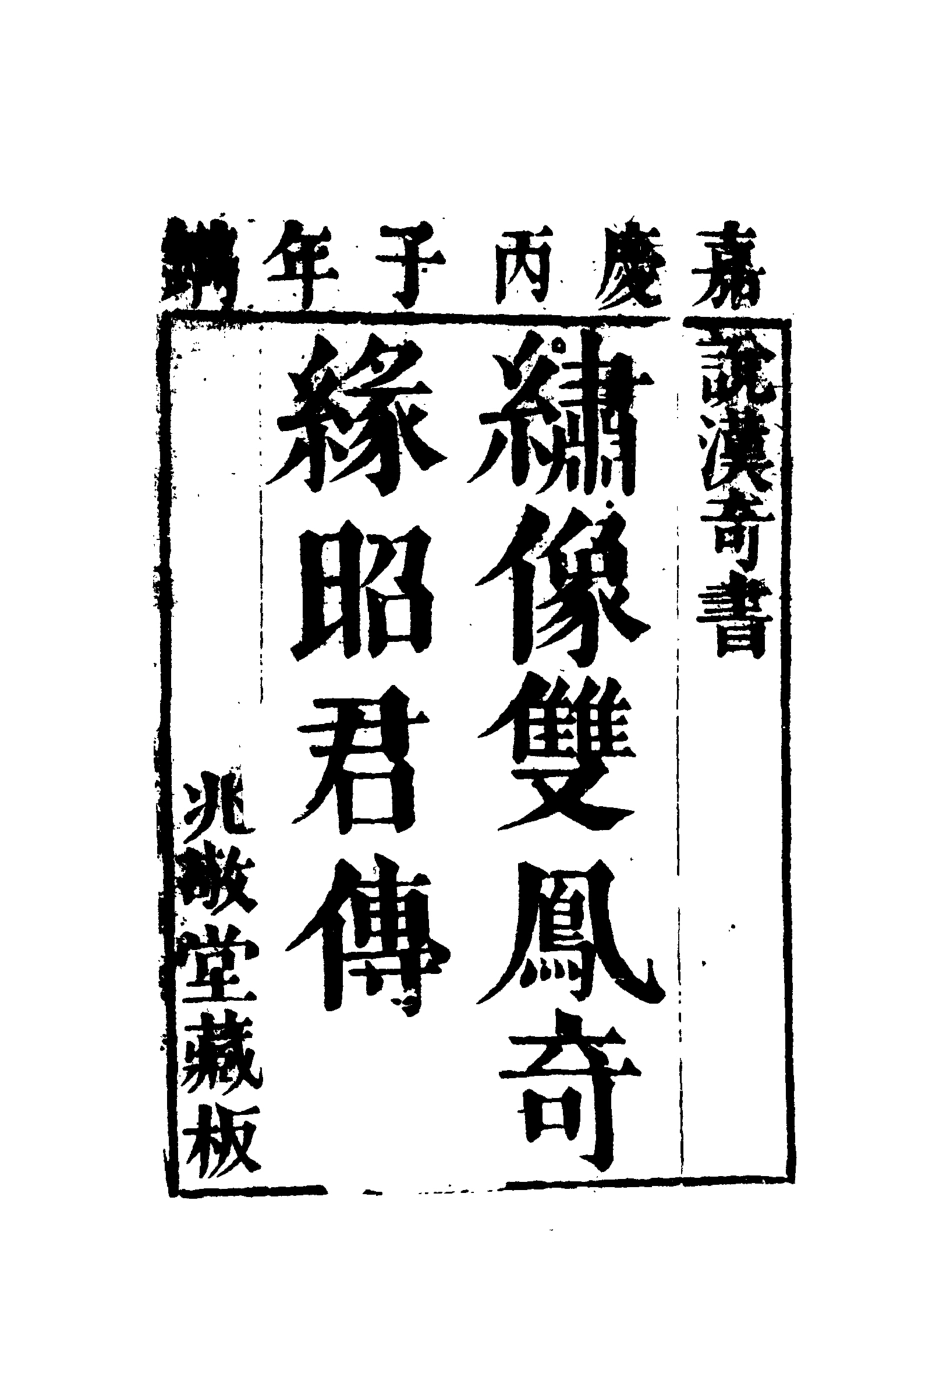 嘉慶丙子年鐫
說漢奇書
繡像雙鳳奇
緣昭君傳
兆敬堂藏板